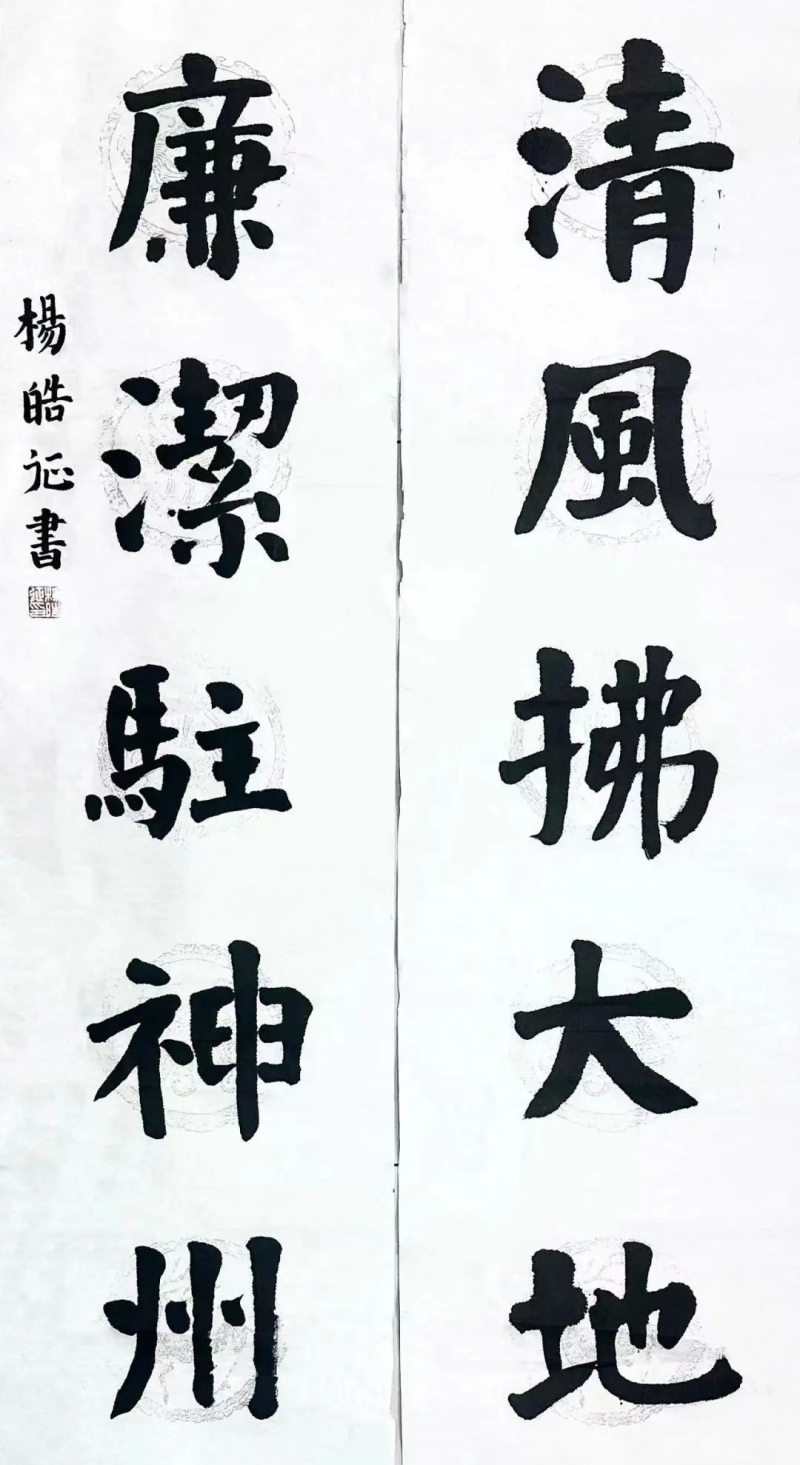 清風拂大地
廉潔駐神州
楊皓征書